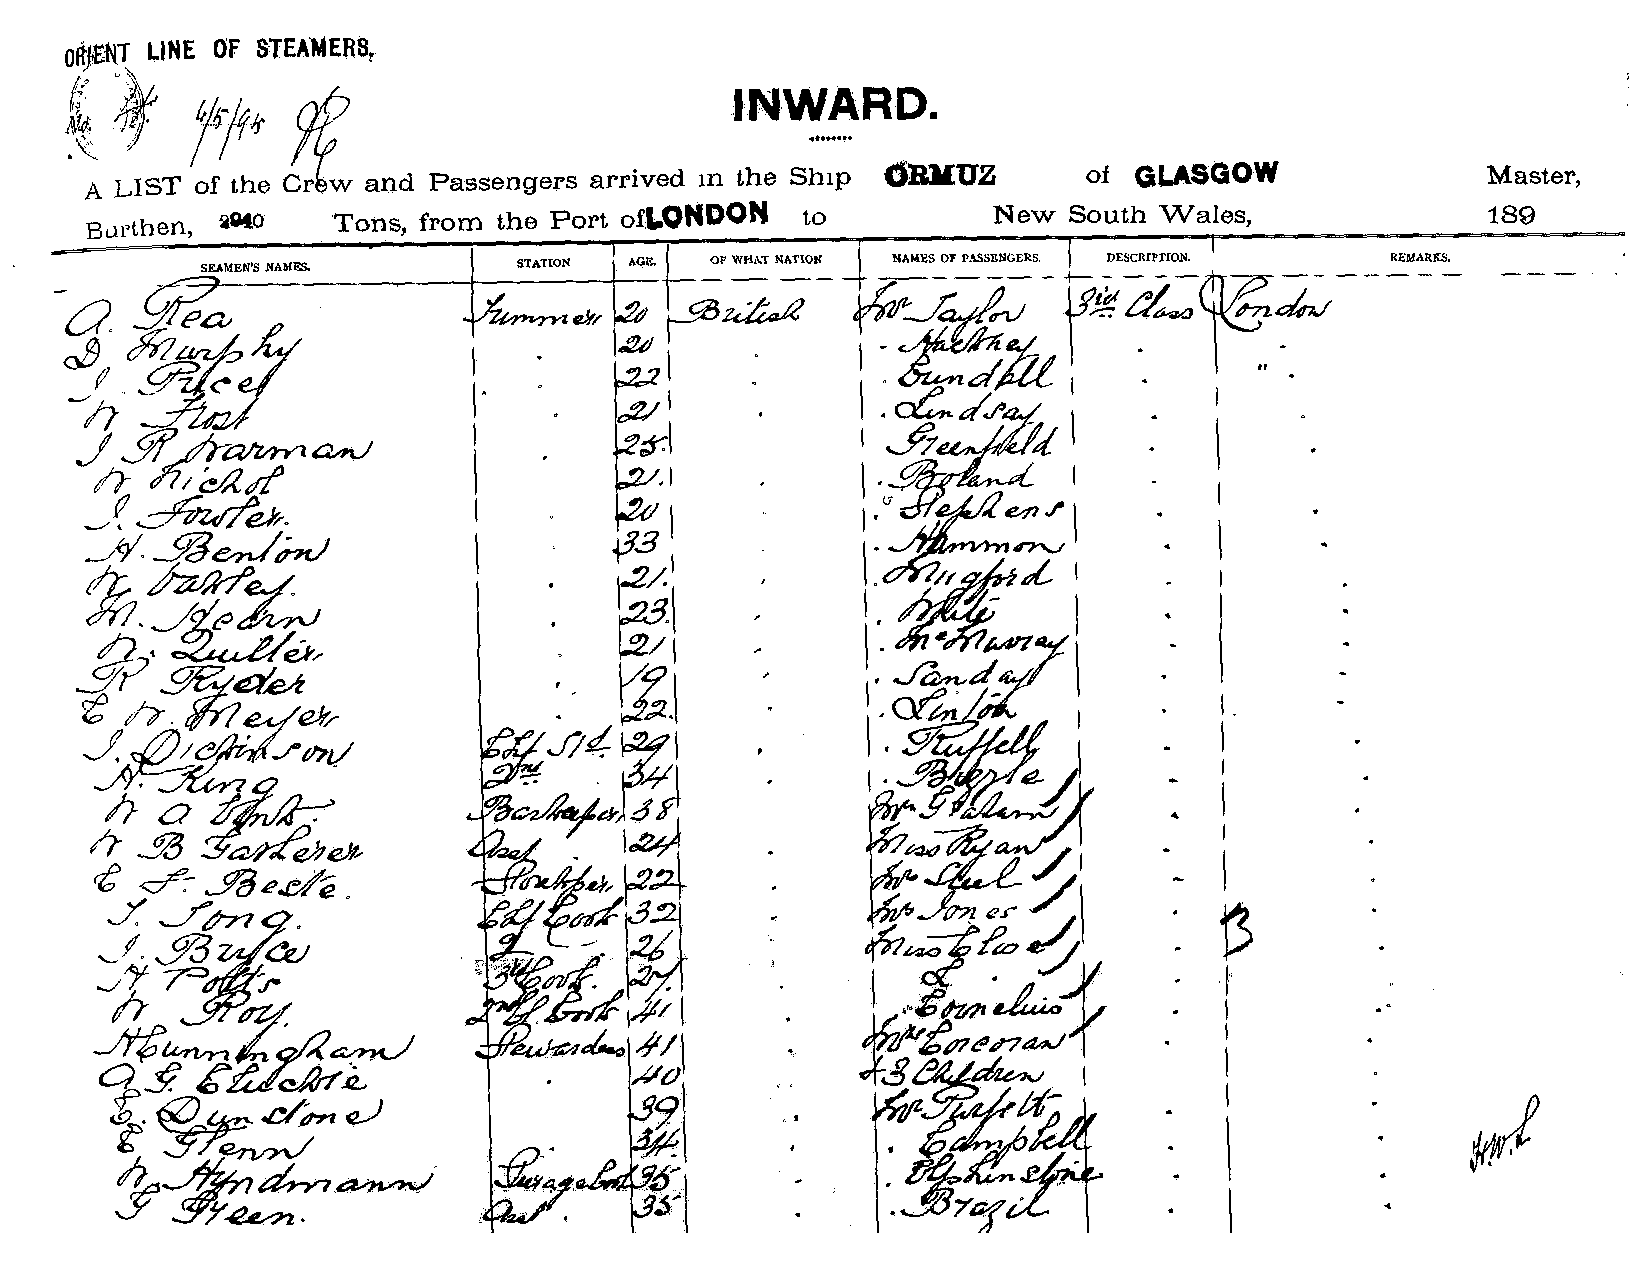 ORIENT LINE OF STEAMERS,
4/5/95
INWARD.
A LIST of the Crew and Passengers arrived in the Ship ORMUZ of GLASGOW Master,
Burthen, Tons, from the Port of LONDON to New South Wales, 189
SEAMEN'S NAMES. STATION AGE. OF WHAT NATION NAMES OF PASSENGERS. DESCRIPTION. REMARKS.
A. Rea Trimmer 20 British Mr Taylor 3rd Class London
D Murphy 20 . Hackney
J. Price 22 .
W Frost 21 . Lindsay
J R Warman 25 Greenfield
W Nichol 21 . Boland
J. Fowler. 20 . Stephens
H. Benton 33 . Hammon
W. Oakley. 21 . Mugford
M. Hearn 23 . White
W. Quilter 21 . McMurray
R Ryder 19 . Sanday
E W. Meyer 22 . Linton
J. Dickinson Chf Std 29 . Ruffell
H. King 2nd 34 .
W A Barkeeper 38 Mr Graham
W B Garherer Asst . 24 Miss Ryan
E F. Beste. Storekpr 22 Mr Steel
J. Song. Chf Cook 32 Mrs Jones
J. Bryce 2 26 Miss
H Potts 3rd Cook. 27
W Roy. 2nd Cook 41 . Cornelius
H Cunningham Stewardess 41 Mrs Corcoran
A G. . 40 + 3 Children
E. Dunstone 39 Mr
E Glenn 34 . Campbell
W. Hyndmann 35 . Elphinstone
G Green. Asst . 35 . Brazil